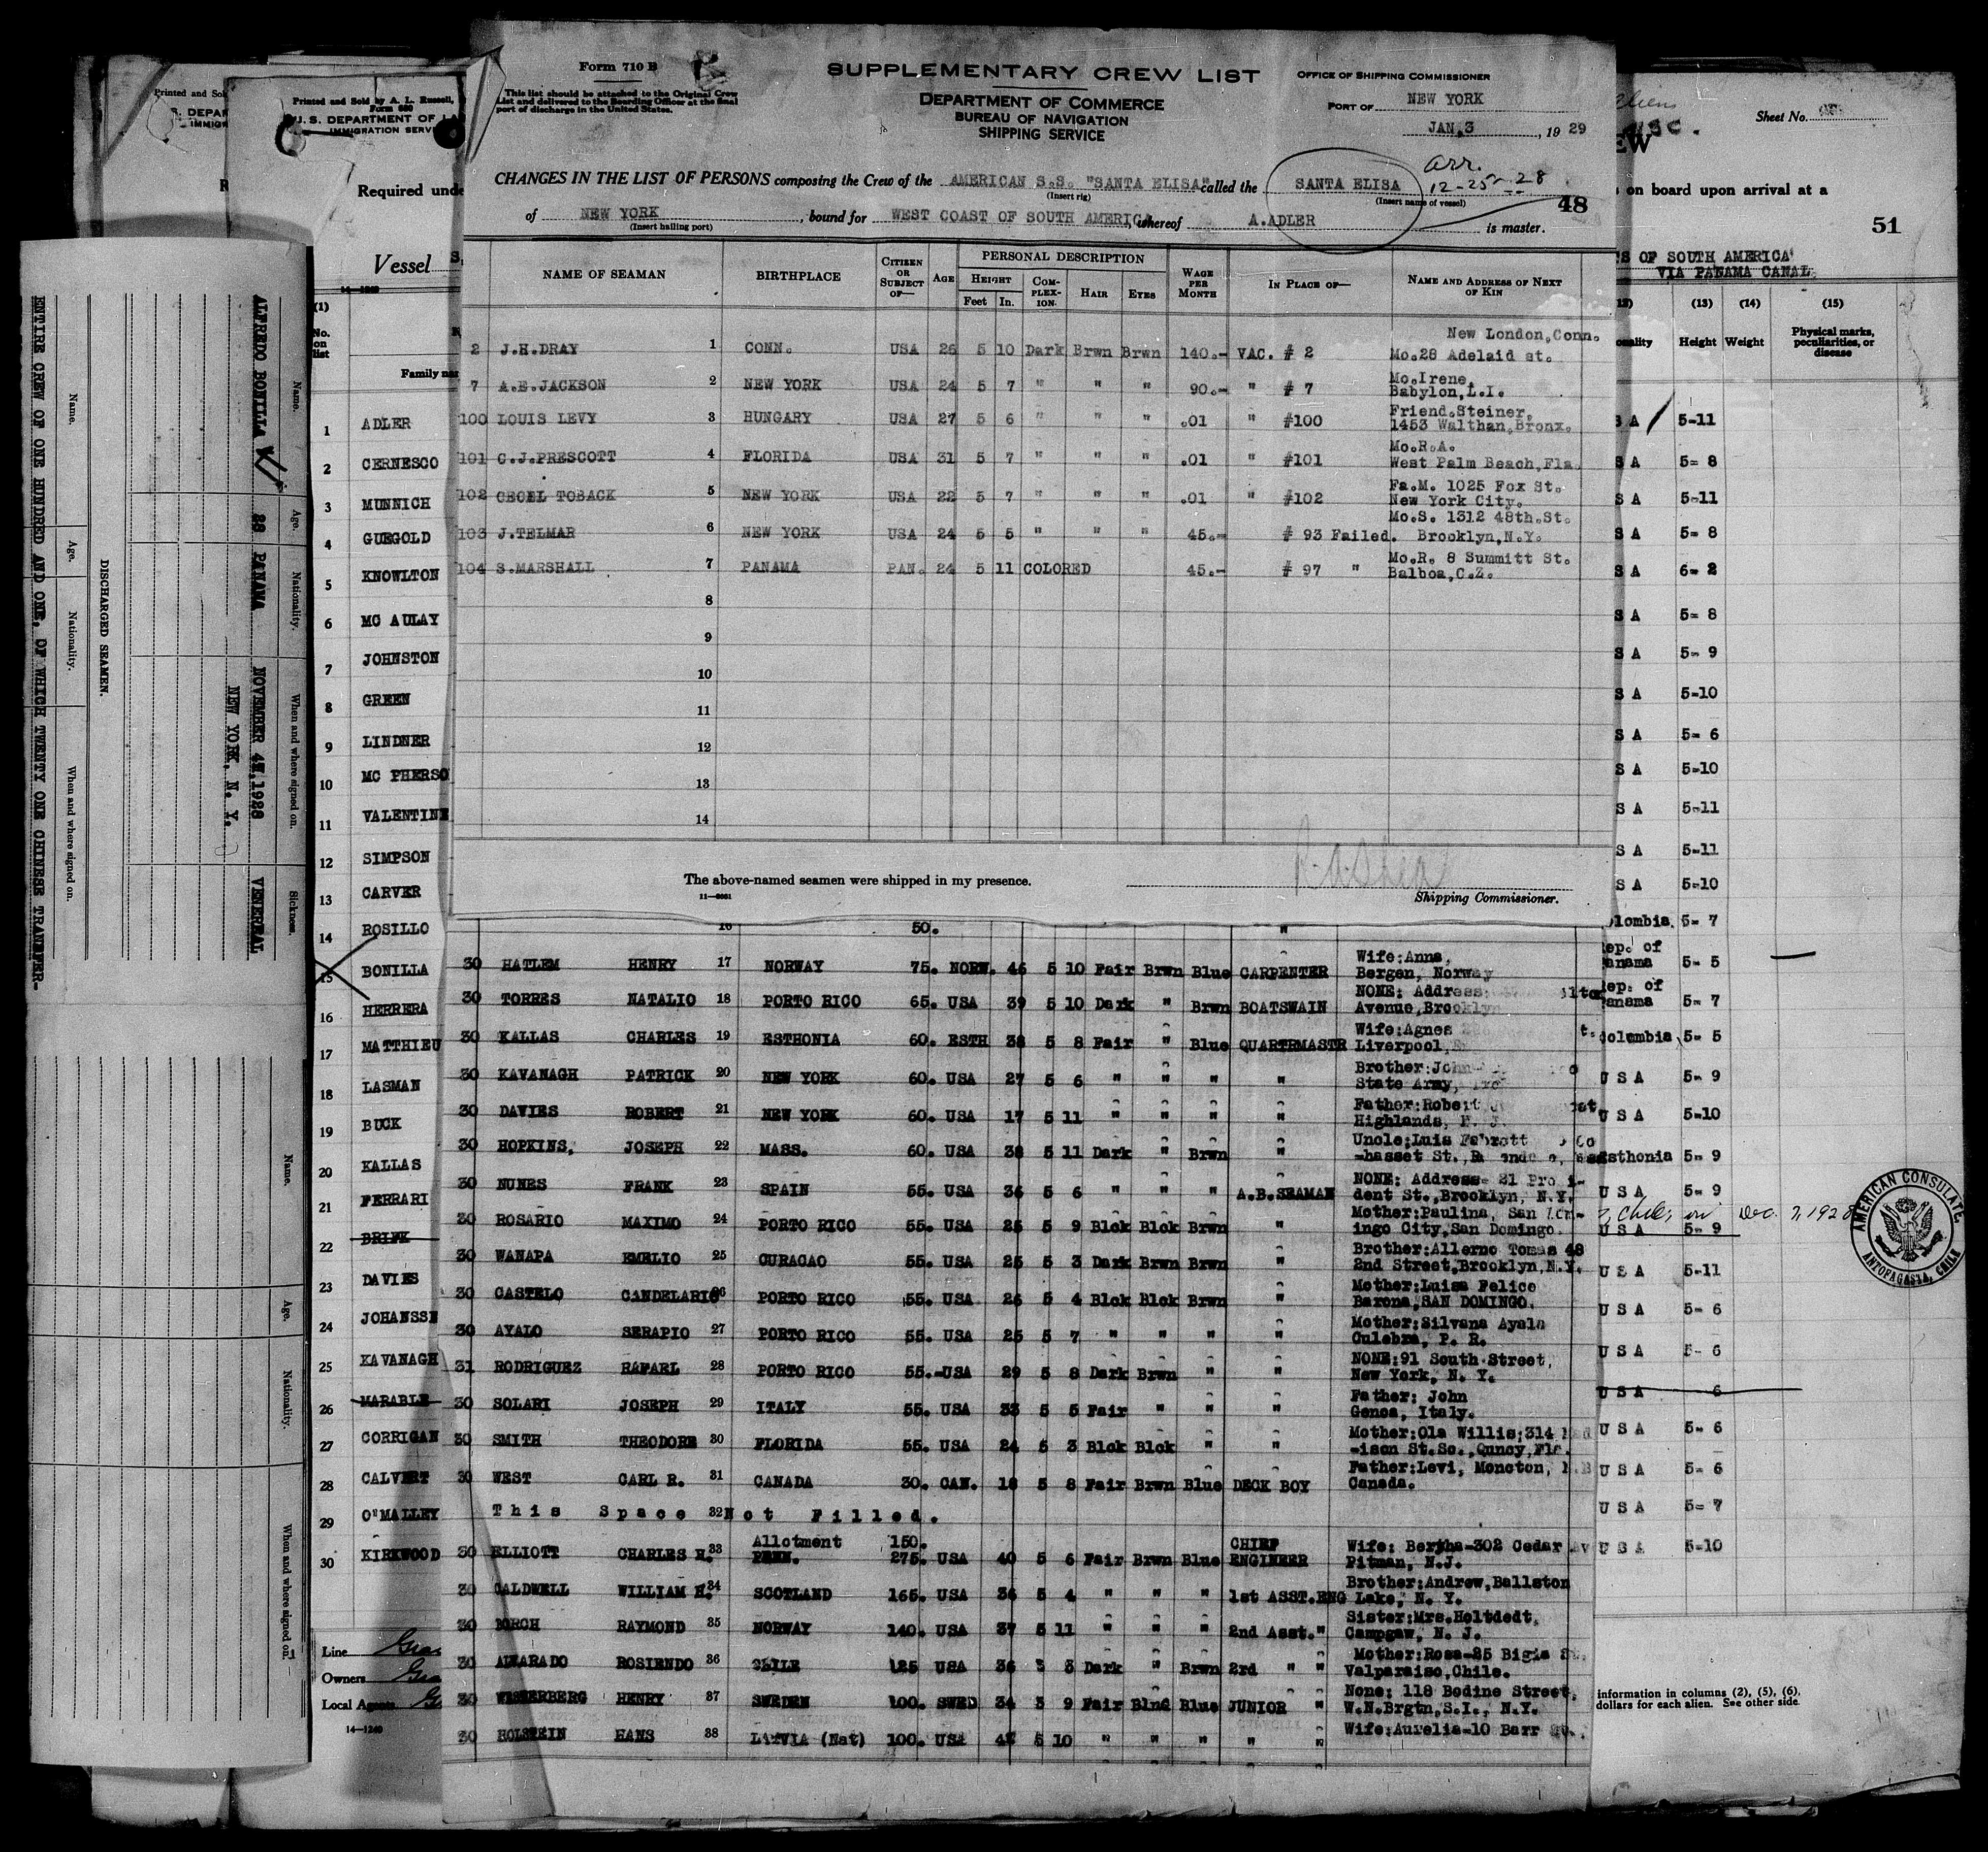 Form 710 B
This list should be attached to the Original Crew
List and delivered to the Boarding Officer at the final
port of discharge in the United States.
SUPPLEMENTARY CREW LIST
DEPARTMENT OF COMMERCE
BUREAU OF NAVIGATION
SHIPPING SERVICE
OFFICE OF SHIPPING COMMISSIONER
PORT OF NEW YORK
JAN.3, 1929
arr.
12-25-28
48
CHANGES IN THE LIST OF PERSONS composing the Crew of the AMERICAN S.S. "SANTA ELISA" called the SANTA ELISA
(Insert rig) (Insert name of vessel)
of NEW YORK, bound for WEST COAST OF SOUTH AMERICA, whereof A.ADLER is master.
(Insert hailing port)
NAME OF SEAMAN BIRTHPLACE CITIZEN OR SUBJECT OF— AGE PERSONAL DESCRIPTION WAGE PER MONTH IN PLACE OF— NAME AND ADDRESS OF NEXT OF KIN
HEIGHT COMPLEXION HAIR EYES
Feet In.
New London,Conn.
2 J.H.DRAY 1 CONN. USA 26 5 10 Dark Brwn Brwn 140.- VAC. # 2 Mo.28 Adelaid st.
7 A.E.JACKSON 2 NEW YORK USA 24 5 7 " " " 90.- " # 7 Mo.Irene,
Babylon,L.I.
100 LOUIS LEVY 3 HUNGARY USA 27 5 6 " " " .01 " #100 Friend.Steiner.
1453 Walthan,Bronx.
101 C.J.PRESCOTT 4 FLORIDA USA 31 5 7 " " " .01 " #101 Mo.R.A.
West Palm Beach,Fla.
102 CECEL TOBACK 5 NEW YORK USA 22 5 7 " " " .01 " #102 Fa.M. 1025 Fox St.
New York City.
103 J.TELMAR 6 NEW YORK USA 24 5 5 " " " 45.- # 93 Failed. Mo.S. 1312 48th.St.
Brooklyn,N.Y.
104 S.MARSHALL 7 PANAMA PAN. 24 5 11 COLORED 45.- # 97 " Mo.R. 8 Summitt St.
Balboa,C.Z.
8
9
10
11
12
13
14
The above-named seamen were shipped in my presence.
R.A.Shea
Shipping Commissioner.
16 50. "
30 HATLEM HENRY 17 NORWAY 75. NORW. 46 5 10 Fair Brwn Blue CARPENTER Wife:Anna,
Bergen, Norway
30 TORRES NATALIO 18 PORTO RICO 65. USA 39 5 10 Dark " Brwn BOATSWAIN NONE: Address:
Avenue,Brooklyn
30 KALLAS CHARLES 19 ESTHONIA 60. ESTH 38 5 8 Fair " Blue QUARTRMASTR Wife:Agnes
Liverpool,
30 KAVANAGH PATRICK 20 NEW YORK 60. USA 27 5 6 " " " " Brother:John
State Army,
30 DAVIES ROBERT 21 NEW YORK 60. USA 17 5 11 " " " " Father:Robert
Highlands, N. J.
30 HOPKINS, JOSEPH 22 MASS. 60. USA 38 5 11 Dark " Brwn " Uncle:Luis
-hasset St.,
30 NUNES FRANK 23 SPAIN 55. USA 36 5 6 " " " A.B.SEAMAN NONE: Address- 21
dent St.,Brooklyn, N.Y.
30 ROSARIO MAXIMO 24 PORTO RICO 55. USA 25 5 9 Blck Blck Brwn " Mother:Paulina, San
ingo City,San Domingo.
30 WANAPA EMELIO 25 CURACAO 55. USA 25 5 3 Dark Brwn Brwn " Brother:Allerno Tomas 48
2nd Street,Brooklyn,N.Y.
30 CASTELO CANDELARIO 26 PORTO RICO 55. USA 26 5 4 Blck Blck Brwn " Mother:Luisa Felico
Barona,SAN DOMINGO.
30 AYALO SERAPIO 27 PORTO RICO 55. USA 25 5 7 " " " " Mother:Silvana Ayala
Culebra, P. R.
31 RODRIGUEZ RAFAEL 28 PORTO RICO 55.-USA 29 5 8 Dark Brwn " " NONE:91 South Street,
New York, N. Y.
30 SOLARI JOSEPH 29 ITALY 55. USA 33 5 5 Fair " " " Father: John
Genoa, Italy.
30 SMITH THEODORE 30 FLORIDA 55. USA 24 5 3 Blck Blck " " Mother:Ola Willis;314
-ison St.So.,Quncy,Fla.
30 WEST CARL R. 31 CANADA 30. CAN. 18 5 8 Fair Brwn Blue DECK BOY Father:Levi, Moncton, N.B
Canada.
This Space 32 Not Filled.
30 ELLIOTT CHARLES H. 33 Allotment 150.
PENN. 275. USA 40 5 6 Fair Brwn Blue CHIEF ENGINEER Wife: Bertha-302 Cedar Av
Pitman, N.J.
30 CALDWELL WILLIAM H. 34 SCOTLAND 165. USA 36 5 4 " " " 1st ASST.ENG Brother:Andrew,Ballston
Lake, N. Y.
30 BORCH RAYMOND 35 NORWAY 140. USA 37 5 11 " " " 2nd Asst." Sister:Mrs.Holtdedt,
Campgaw, N. J.
30 ALVARADO ROSIENDO 36 CHILE 125 USA 36 5 3 Dark " Brwn 3rd " " Mother:Rosa-25
Valparaiso,Chile.
30 WESTERBERG HENRY 37 SWEDEN 100. SWED 34 5 9 Fair Blnd Blue JUNIOR " None; 118 Bodine Street,
W.N.Brgtn,S.I., N.Y.
30 HOLSTEIN HANS 38 LATVIA (Nat) 100. USA 5 10 " " " " " Wife:Aurelia-10 Barr
Printed and Sold by A. L. Russell,
Form 680
U.S. DEPARTMENT OF LA
IMMIGRATION SERV
Required unde
Vessel
14-1240
(1)
No. on list
Family
1 ADLER
2 CERNESCO
3 MUNNICH
4 GUEGOLD
5 KNOWLTON
6 MC AULAY
7 JOHNSTON
8 GREEN
9 LINDNER
10 MC PHERSO
11 VALENTINE
12 SIMPSON
13 CARVER
14 ROSILLO
15 BONILLA
16 HERRERA
17 MATTHIEU
18 LASMAN
19 BUCK
20 KALLAS
21 FERRARI
22 BRINK
23 DAVIES
24 JOHANSSN
25 KAVANAGH
26 MARABLE
27 CORRIGAN
28 CALVERT
29 O"MALLEY
30 KIRKWOOD
Line
Owners
Local Agents
14-1240
Printed and Sol
S. DEPAR
IMMIGR
ENTIRE CREW OF ONE HUNDRED AND ONE, OF WHICH TWENTY ONE CHINESE TRANSFER-
DISCHARGED SEAMEN.
Name. Age. Nationality. When and where signed on.
Name. Age. Nationality. When and where signed on. Sickness.
ALFREDO BONILLA 28 PANAMA NOVEMBER 1928 VENEREAL
NEW YORK, N. Y.
Name. Age. Nationality. When and where signed on.
Sheet No.
EW
on board upon arrival at a
51
S OF SOUTH AMERICA
VIA PANAMA CANAL
(13) (14) (15)
Height Weight Physical marks, peculiarities, or disease
S A 5-11
S A 5- 8
S A 5-11
S A 5- 8
S A 6- 2
S A 5- 8
S A 5- 9
S A 5-10
S A 5- 6
S A 5-10
S A 5-11
S A 5-11
S A 5-10
olombia. 5- 7
ep. of
anama 5- 5
ep. of
anama 5- 7
Colombia 5- 5
U S A 5- 9
U S A 5-10
Esthonia 5- 9
U S A 5- 9
Chile, on Dec. 7, 1928
U S A 5- 9
U S A 5-11
U S A 5- 6
U S A 5- 6
U S A 6
U S A 5- 6
U S A 5- 6
U S A 5- 7
U S A 5-10
AMERICAN CONSULATE
ANTOFAGASTA, CHILE
information in columns (2), (5), (6).
dollars for each alien. See other side.